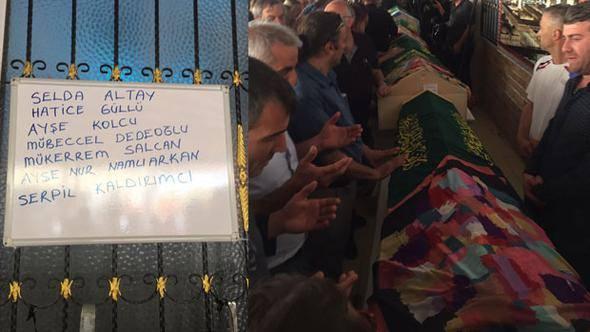 SELDA ALTAY
HATİCE GÜLLÜ
AYŞE KOLCU
MÜBECCEL DEDEOĞLU
MÜKERREM SALCAN
AYŞE NUR NAMLIARKAN
SERPİL KALDIRIMCI